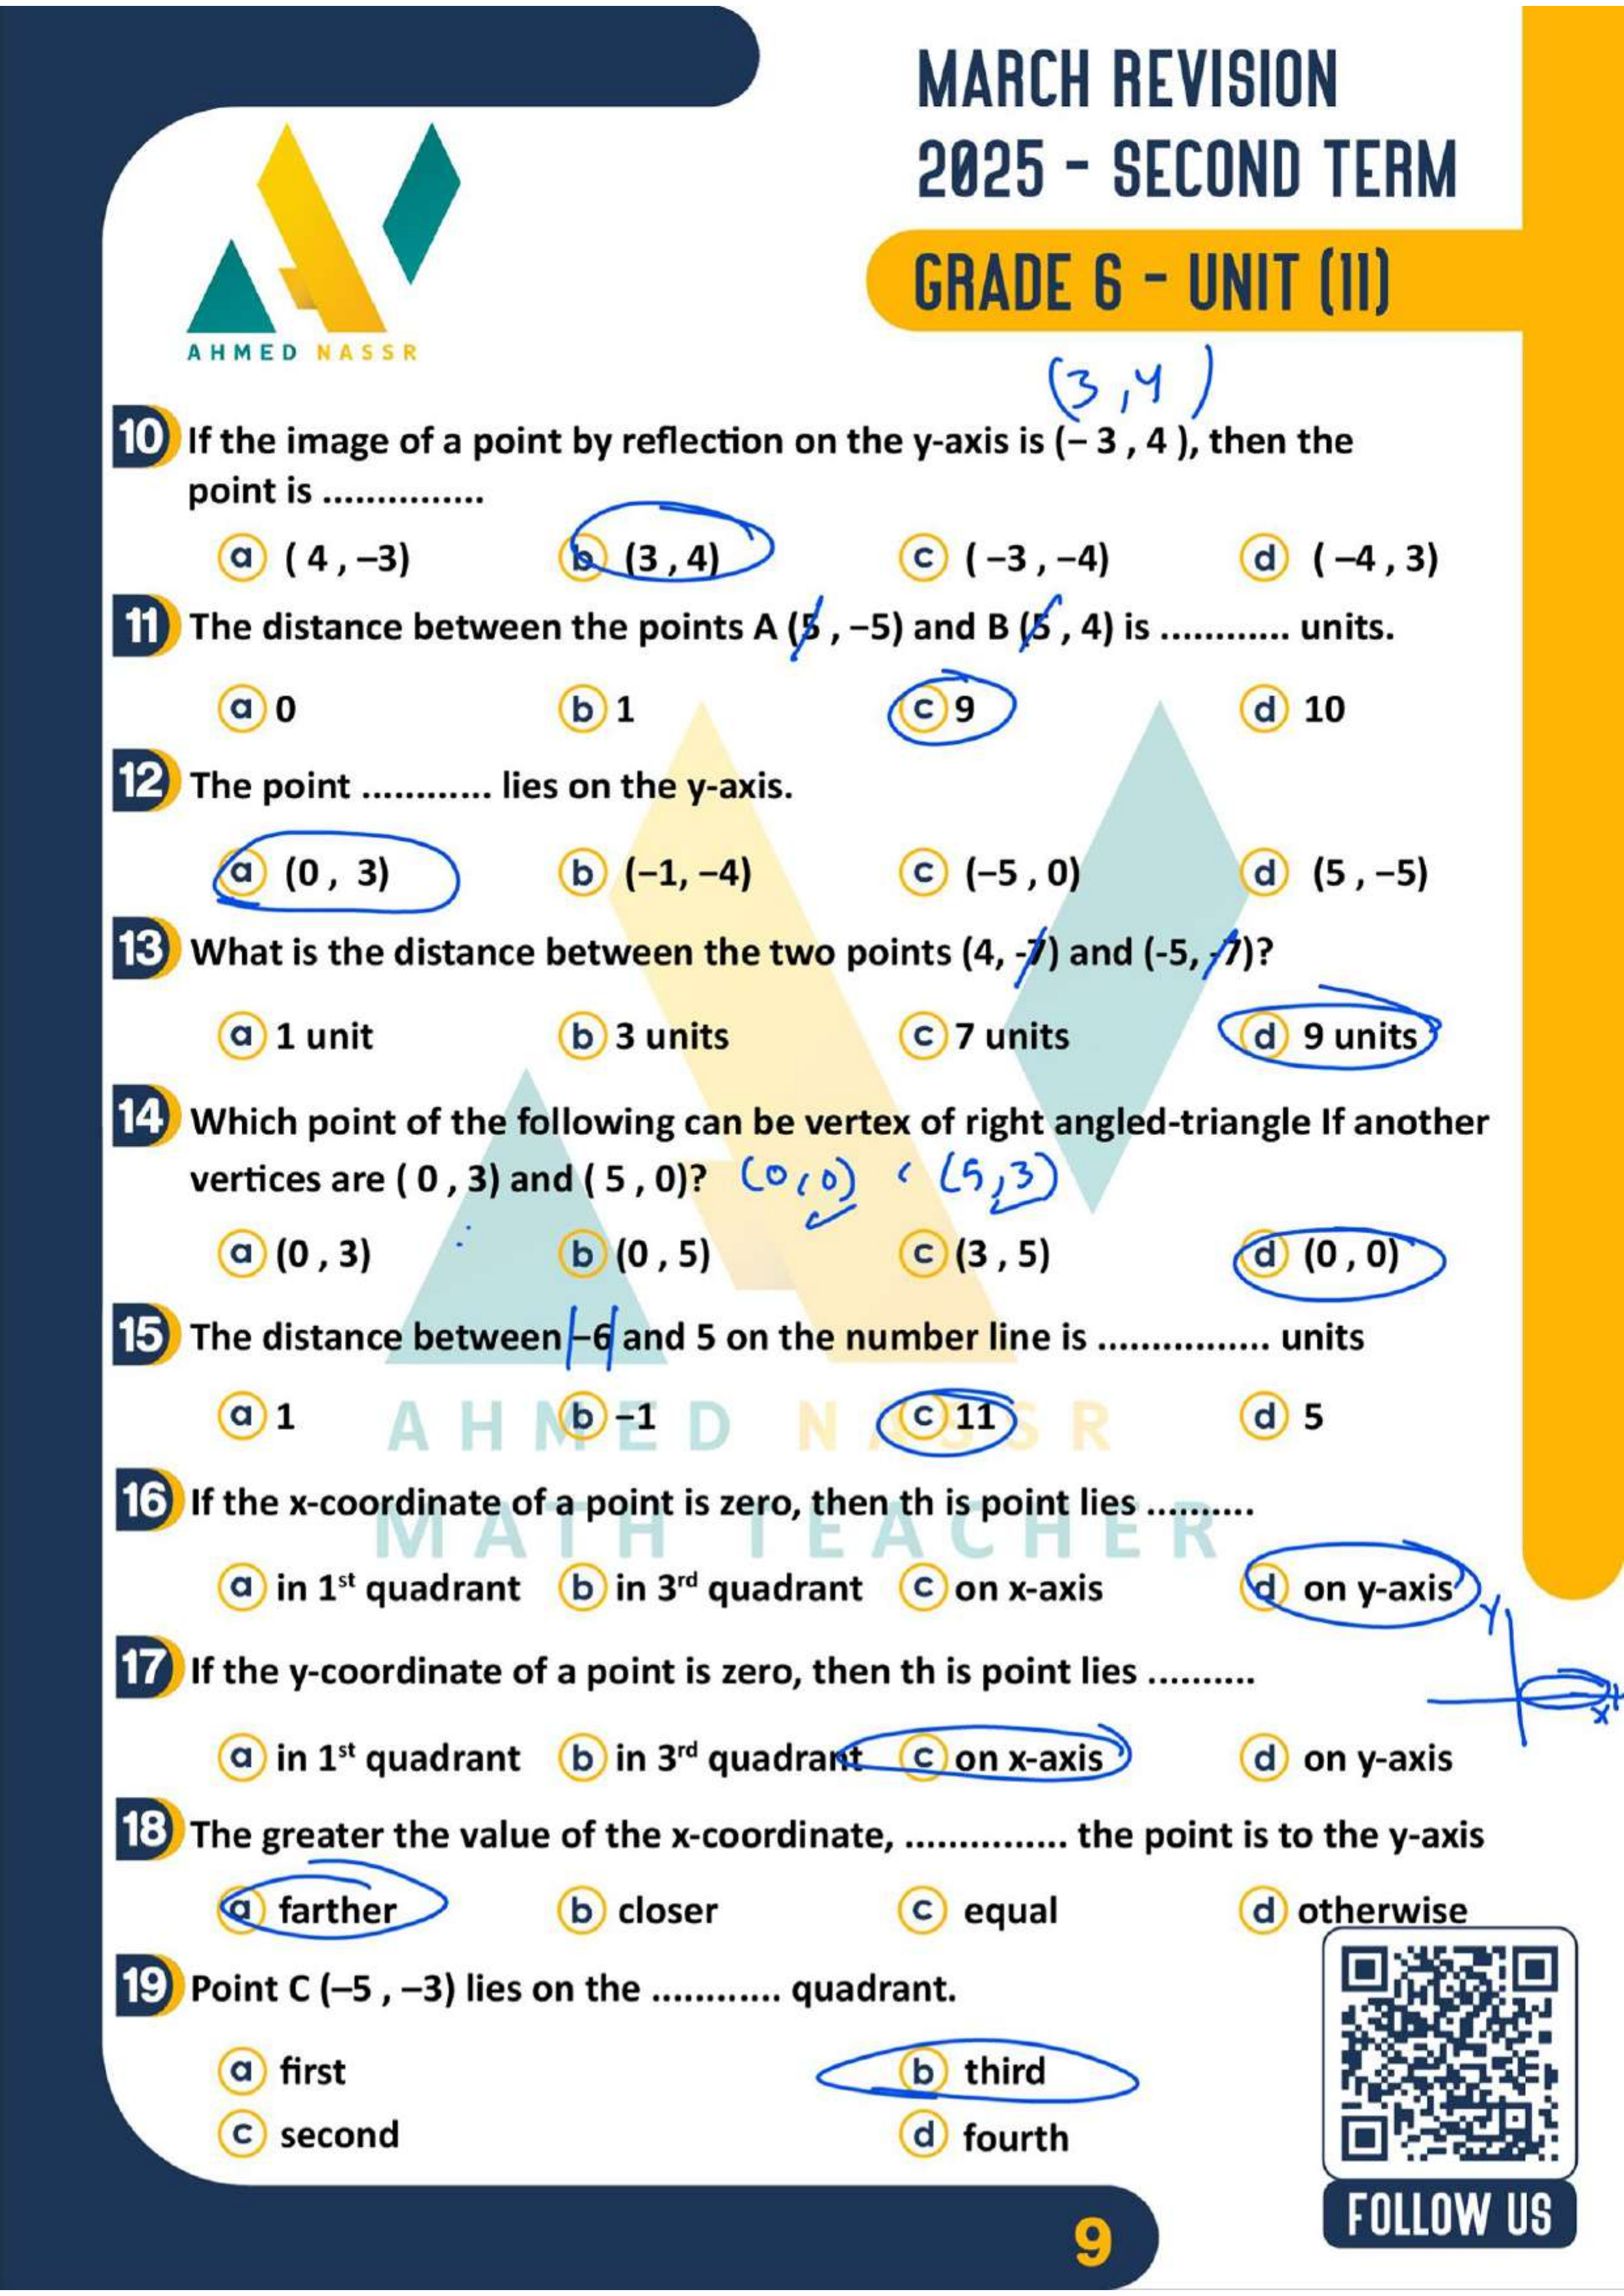 MARCH REVISION
2025 - SECOND TERM
GRADE 6 - UNIT (11)
AHMED NASSR
(3,4)
10 If the image of a point by reflection on the y-axis is (– 3 , 4 ), then the
point is ...............
a ( 4 , –3) b (3 , 4) c ( –3 , –4) d ( –4 , 3)
11 The distance between the points A (5 , –5) and B (5 , 4) is ............ units.
a 0 b 1 c 9 d 10
12 The point ............ lies on the y-axis.
a (0 , 3) b (–1, –4) c (–5 , 0) d (5 , –5)
13 What is the distance between the two points (4, -7) and (-5, -7)?
a 1 unit b 3 units c 7 units d 9 units
14 Which point of the following can be vertex of right angled-triangle If another
vertices are ( 0 , 3) and ( 5 , 0)? (0,0) ‹ (5,3)
a (0 , 3) b (0 , 5) c (3 , 5) d (0 , 0)
15 The distance between |–6| and 5 on the number line is ................ units
a 1 b –1 c 11 d 5
AHMED NASSR
16 If the x-coordinate of a point is zero, then th is point lies ..........
MATH TEACHER
a in 1st quadrant b in 3rd quadrant c on x-axis d on y-axis
y
17 If the y-coordinate of a point is zero, then th is point lies ..........
x
a in 1st quadrant b in 3rd quadrant c on x-axis d on y-axis
18 The greater the value of the x-coordinate, ............... the point is to the y-axis
a farther b closer c equal d otherwise
19 Point C (–5 , –3) lies on the ............ quadrant.
a first b third
c second d fourth
FOLLOW US
9